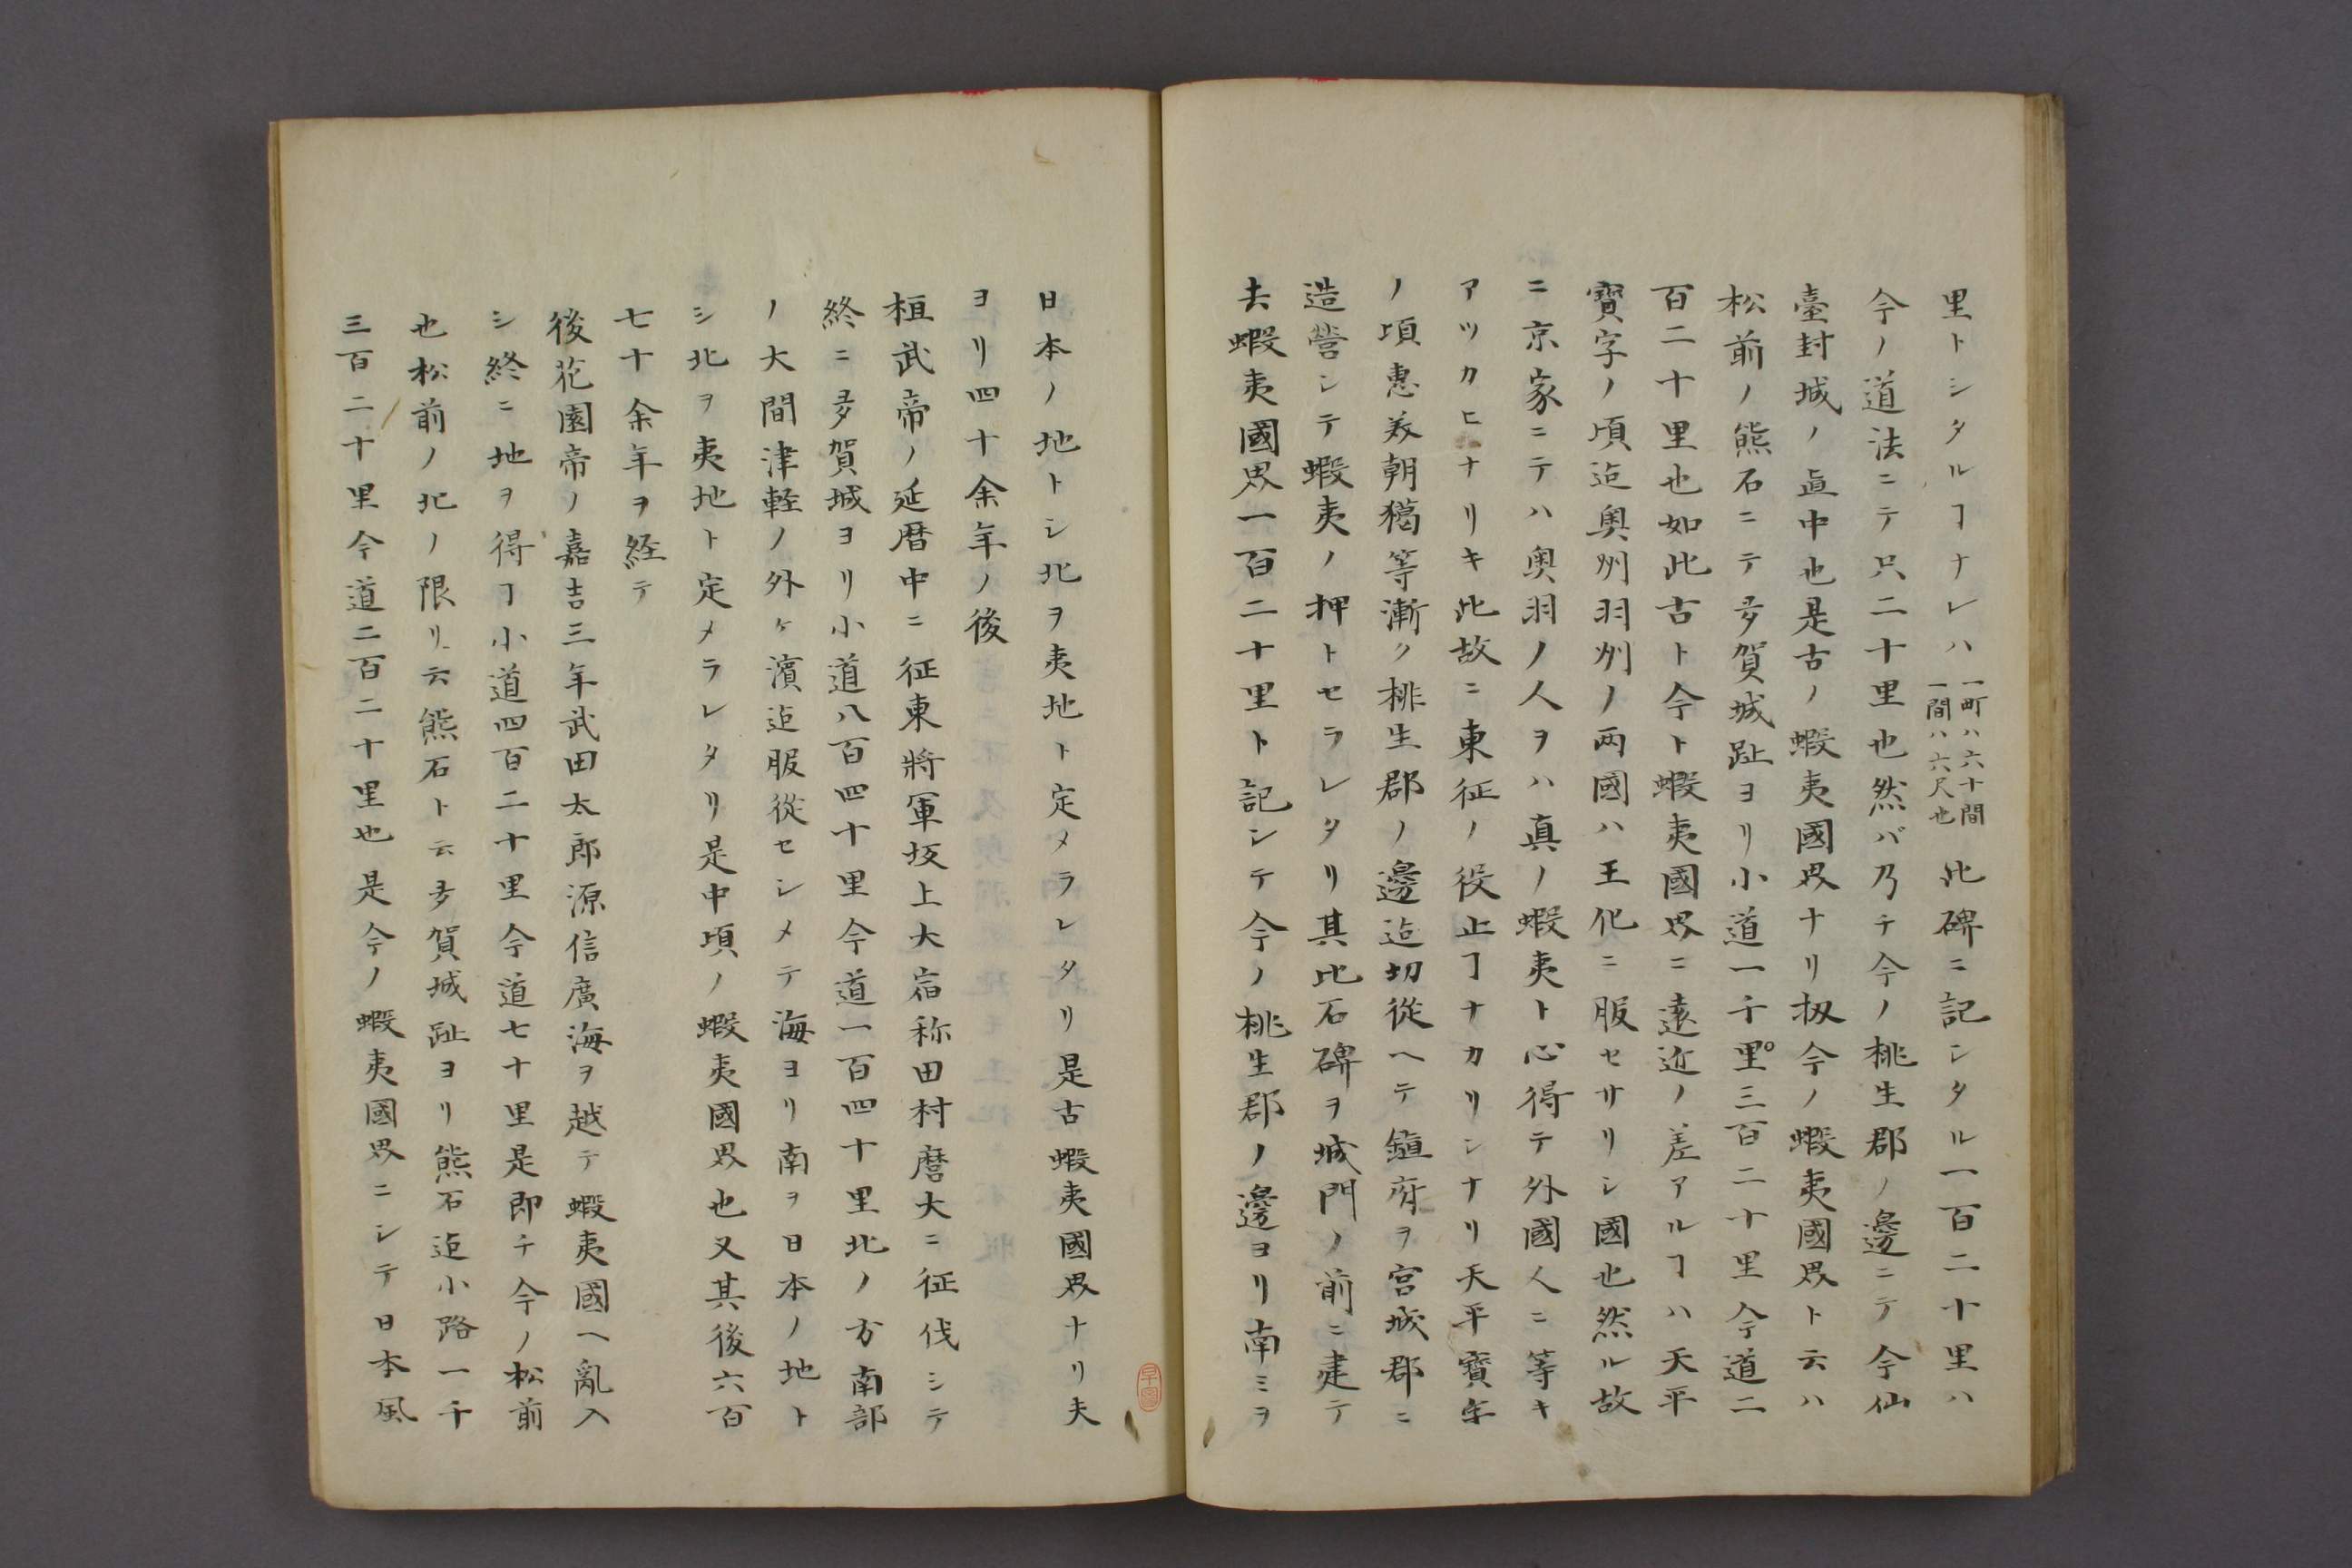 里トシタルヿナレハ一町ハ六十間
一間ハ六尺也此碑ニ記シタル一百二十里ハ
今ノ道法ニテ只二十里也然バ乃チ今ノ桃生郡ノ邊ニテ今仙
臺封城ノ眞中也是古ノ蝦夷國界ナリ扨今ノ蝦夷國界ト云ハ
松前ノ熊石ニテ多賀城趾ヨリ小道一千里三百二十里今道二
百二十里也如此古ト今ト蝦夷國界ニ遠近ノ差アルヿハ天平
寶字ノ頃迠奥州羽州ノ両國ハ王化ニ服セサリシ國也然ル故
ニ京家ニテハ奥羽ノ人ヲハ真ノ蝦夷ト心得テ外國人ニ等キ
アツカヒナリキ此故ニ東征ノ役止ヿナカリシナリ天平寶字
ノ頃惠美朝獦等漸ク桃生郡ノ邊迠切從ヘテ鎮府ヲ宮城郡ニ
造營シテ蝦夷ノ押トセラレタリ其比石碑ヲ城門ノ前ニ建テ
去蝦夷國界一百二十里ト記シテ今ノ桃生郡ノ邊ヨリ南ミヲ
日本ノ地トシ北ヲ夷地ト定メラレタリ是古蝦夷國界ナリ夫
ヨリ四十余年ノ後
桓武帝ノ延暦中ニ征東將軍坂上大宿称田村麿大ニ征伐シテ
終ニ多賀城ヨリ小道八百四十里今道一百四十里北ノ方南部
ノ大間津軽ノ外ヶ濱迠服從セシメテ海ヨリ南ヲ日本ノ地ト
シ北ヲ夷地ト定メラレタリ是中頃ノ蝦夷國界也又其後六百
七十余年ヲ経テ
後花園帝ノ嘉吉三年武田太郎源信廣海ヲ越テ蝦夷國ヘ亂入
シ終ニ地ヲ得ヿ小道四百二十里今道七十里是即チ今ノ松前
也松前ノ北ノ限リ云熊石ト云多賀城趾ヨリ熊石迠小路一千
三百二十里今道二百二十里也是今ノ蝦夷國界ニシテ日本風
早圖